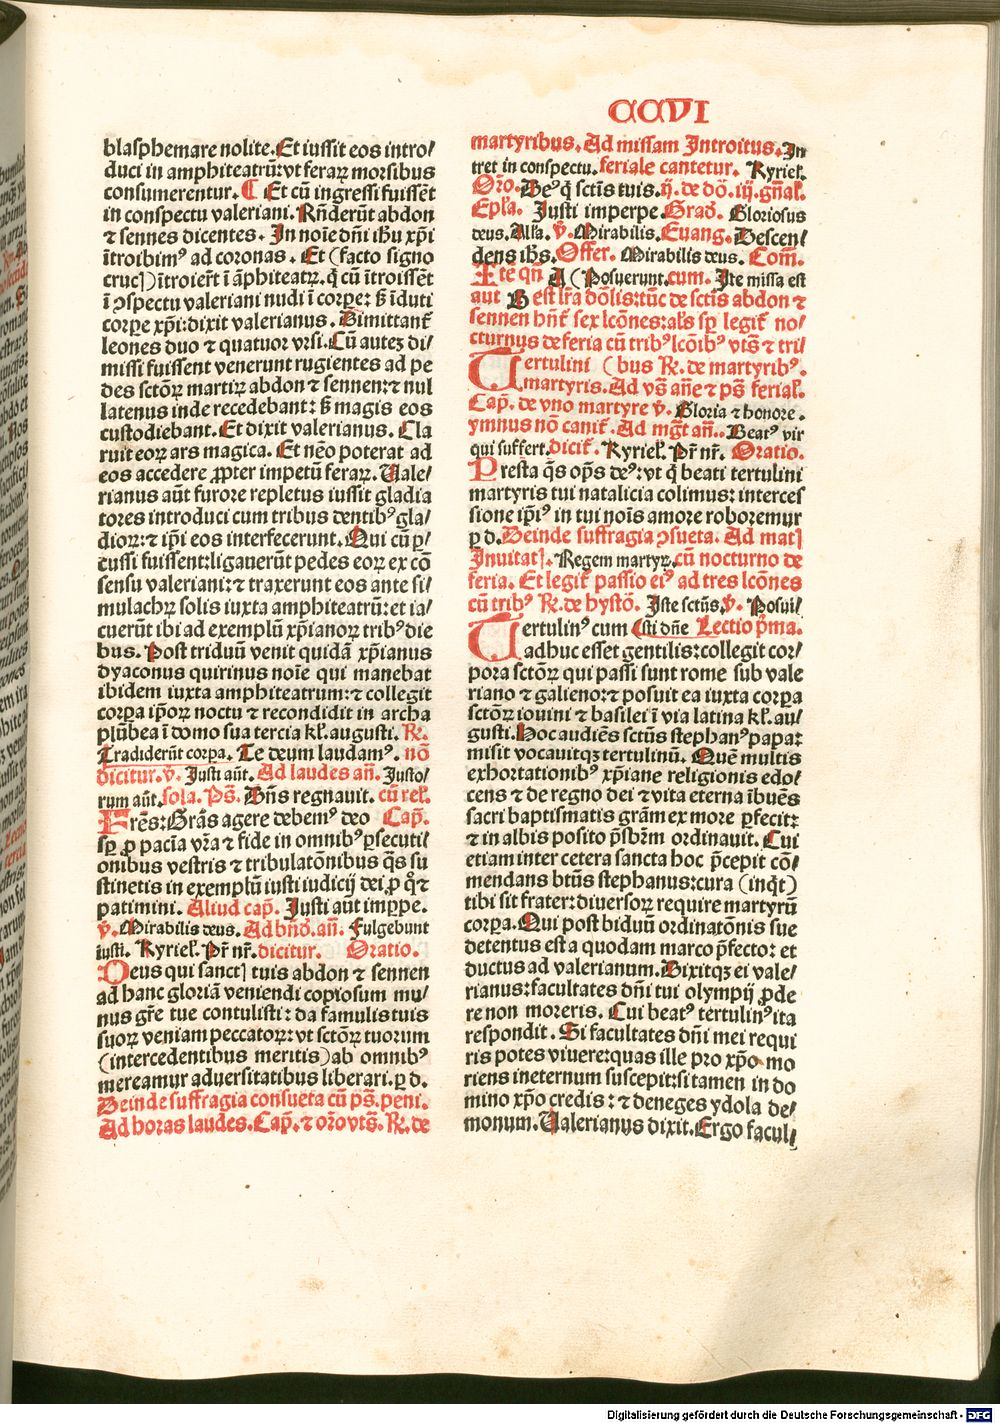 CCVI
blasphemare nolite. Et iussit eos intro/
duci in amphiteatrū: vt feraꝝ morsibus
consumerentur. ¶ Et cū ingressi fuissēt
in conspectu valeriani. Rñderūt abdon
⁊ sennes dicentes. In noīe dn̄i ihū xp̄i
ītroibimꝰ ad coronas. Et (facto signo
crucꝭ) ītroierūt ī āphiteatꝝ. q̄ cū ītroissēt
ī ꝯspectu valeriani nudi ī corpe: sꝫ īduti
corpe xp̄i: dixit valerianus. Dimittant᷑
leones duo ⁊ quatuor vrsi. Cū autez di/
missi fuissent venerunt rugientes ad pe
des sctōꝝ martiꝝ abdon ⁊ sennen: ⁊ nul
latenus inde recedebant: sꝫ magis eos
custodiebant. Et dixit valerianus. Cla
ruit eoꝝ ars magica. Et nēo poterat ad
eos accedere ꝓpter impetū feraꝝ. Uale/
rianus aūt furore repletus iussit gladia
tores introduci cum tribus dentibꝰ gla/
dioꝝ: ⁊ ip̄i eos interfecerunt. Qui cū ꝑ/
cussi fuissent: ligauerūt pedes eoꝝ ex cō
sensu valeriani: ⁊ traxerunt eos ante si/
mulachꝝ solis iuxta amphiteatrū: et ia/
cuerūt ibi ad exemplū xp̄ianoꝝ tribꝰ die
bus. Post triduū venit quidā xp̄ianus
dyaconus quirinus noīe qui manebat
ibidem iuxta amphiteatrum: ⁊ collegit
corpa ip̄oꝝ noctu ⁊ recondidit in archa
plūbea ī domo sua tercia kl̄. augusti. R̄.
Tradiderūt corpa. Te deum laudamꝰ. nō
dicitur. v̄. Justi aūt. Ad laudes añ. Justo/
rum aūt. sola. Ps̄. Dn̄s regnauit. cū rel̄.
Frēs: Grās agere debemꝰ deo Cap̄.
sꝑ ꝓ pacīa vr̄a ⁊ fide in omnibꝰ ꝑsecuti/
onibus vestris ⁊ tribulatōnibus q̄s su
stinetis in exemplū iusti iudicij dei ꝓ qͦ ⁊
patimini. Aliud cap̄. Justi aūt imppe.
v̄. Mirabilis deus. Ad bn̄d. añ. Fulgebunt
iusti. Kyriel̄. Pr̄ nr̄. dicitur. Oratio.
Deus qui sanctꝭ tuis abdon ⁊ sennen
ad hanc gloriā veniendi copiosum mu/
nus gr̄e tue contulisti: da famulis tuis
suoꝝ veniam peccatoꝝ: vt sctōꝝ tuorum
(intercedentibus meritis) ab omnibꝰ
mereamur aduersitatibus liberari. ꝑ d.
Deinde suffragia consueta cū ps̄. peni.
Ad horas laudes. Cap̄. ⁊ orō vts̄. R̄. de
martyribus. Ad missam Introitus. In
tret in conspectu. feriale cantetur. Kyriel̄.
Orō. Deꝰ q̄ sctīs tuis. ij. de dō. iij. gn̄al̄.
Epl̄a. Justi imperpe. Grad̄. Gloriosus
deus. All̄a. v̄. Mirabilis. Euang. Descen/
dens ih̄s. Offer. Mirabilis deus. Com̄.
Posuerunt. cum. Ite missa est
aut B est lr̄a dōlis: tūc de sctīs abdon ⁊
sennen hn̄t᷑ sex lcōnes: al̄s sꝑ legit᷑ no/
cturnus de feria cū tribꝰ lcōibꝰ vts̄ ⁊ tri/
Tertulini (bus R̄. de martyribꝰ.
martyris. Ad vs̄ añe ⁊ ps̄ ferial̄.
Cap̄. de vno martyre v̄. Gloria ⁊ honore.
ymnus nō canit᷑. Ad mgt̄ añ. Beatꝰ vir
qui suffert. dicit᷑. Kyriel̄. Pr̄ nr̄. Oratio.
Presta q̄s op̄s deꝰ: vt q̄ beati tertulini
martyris tui natalicia colimus: interces
sione ip̄iꝰ in tui noīs amore roboremur
ꝑ d. Deinde suffragia ꝯsueta. Ad matꝭ
Inuitatꝭ. Regem martyꝝ. cū nocturno de
feria. Et legit᷑ passio eiꝰ ad tres lcōnes
cū tribꝰ R̄. de hystō. Iste sctūs. v̄. Posui/
Tertulinꝰ cum (sti dn̄e Lectio p̄ma.
adhuc esset gentilis: collegit cor/
pora sctōꝝ qui passi sunt rome sub vale
riano ⁊ galieno: ⁊ posuit ea iuxta corpa
sctōꝝ iouini ⁊ basilei ī via latina kl̄. au/
gusti. Hoc audiēs sctūs stephanꝰ papa:
misit vocauitqꝫ tertulinū. Quē multis
exhortationibꝰ xp̄iane religionis edo/
cens ⁊ de regno dei ⁊ vita eterna ībuēs
sacri baptismatis grām ex more ꝑfecit:
⁊ in albis posito p̄sbr̄m ordinauit. Cui
etiam inter cetera sancta hoc p̄cepit cō/
mendans btūs stephanus: cura (inqͥt)
tibi sit frater: diuersoꝝ require martyrū
corpa. Qui post biduū ordinatōnis sue
detentus est a quodam marco p̄fecto: et
ductus ad valerianum. Dixitqꝫ ei vale/
rianus: facultates dn̄i tui olympij ꝓde
re non moreris. Cui beatꝰ tertulinꝰ ita
respondit. Si facultates dn̄i mei requi
ris potes viuere: quas ille pro xp̄o mo
riens ineternum suscepit: si tamen in do
mino xp̄o credis: ⁊ deneges ydola de/
monum. Ualerianus dixit. Ergo facul/
Digitalisierung gefördert durch die Deutsche Forschungsgemeinschaft - DFG